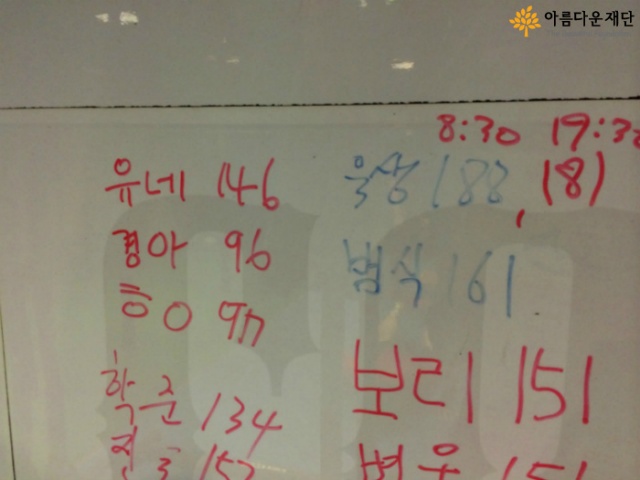 아름다운재단
8:30 19:30
유네 146
경아 96
97
학준 134
152
욱상 188, 181
범식 161
보리 151
병우 151